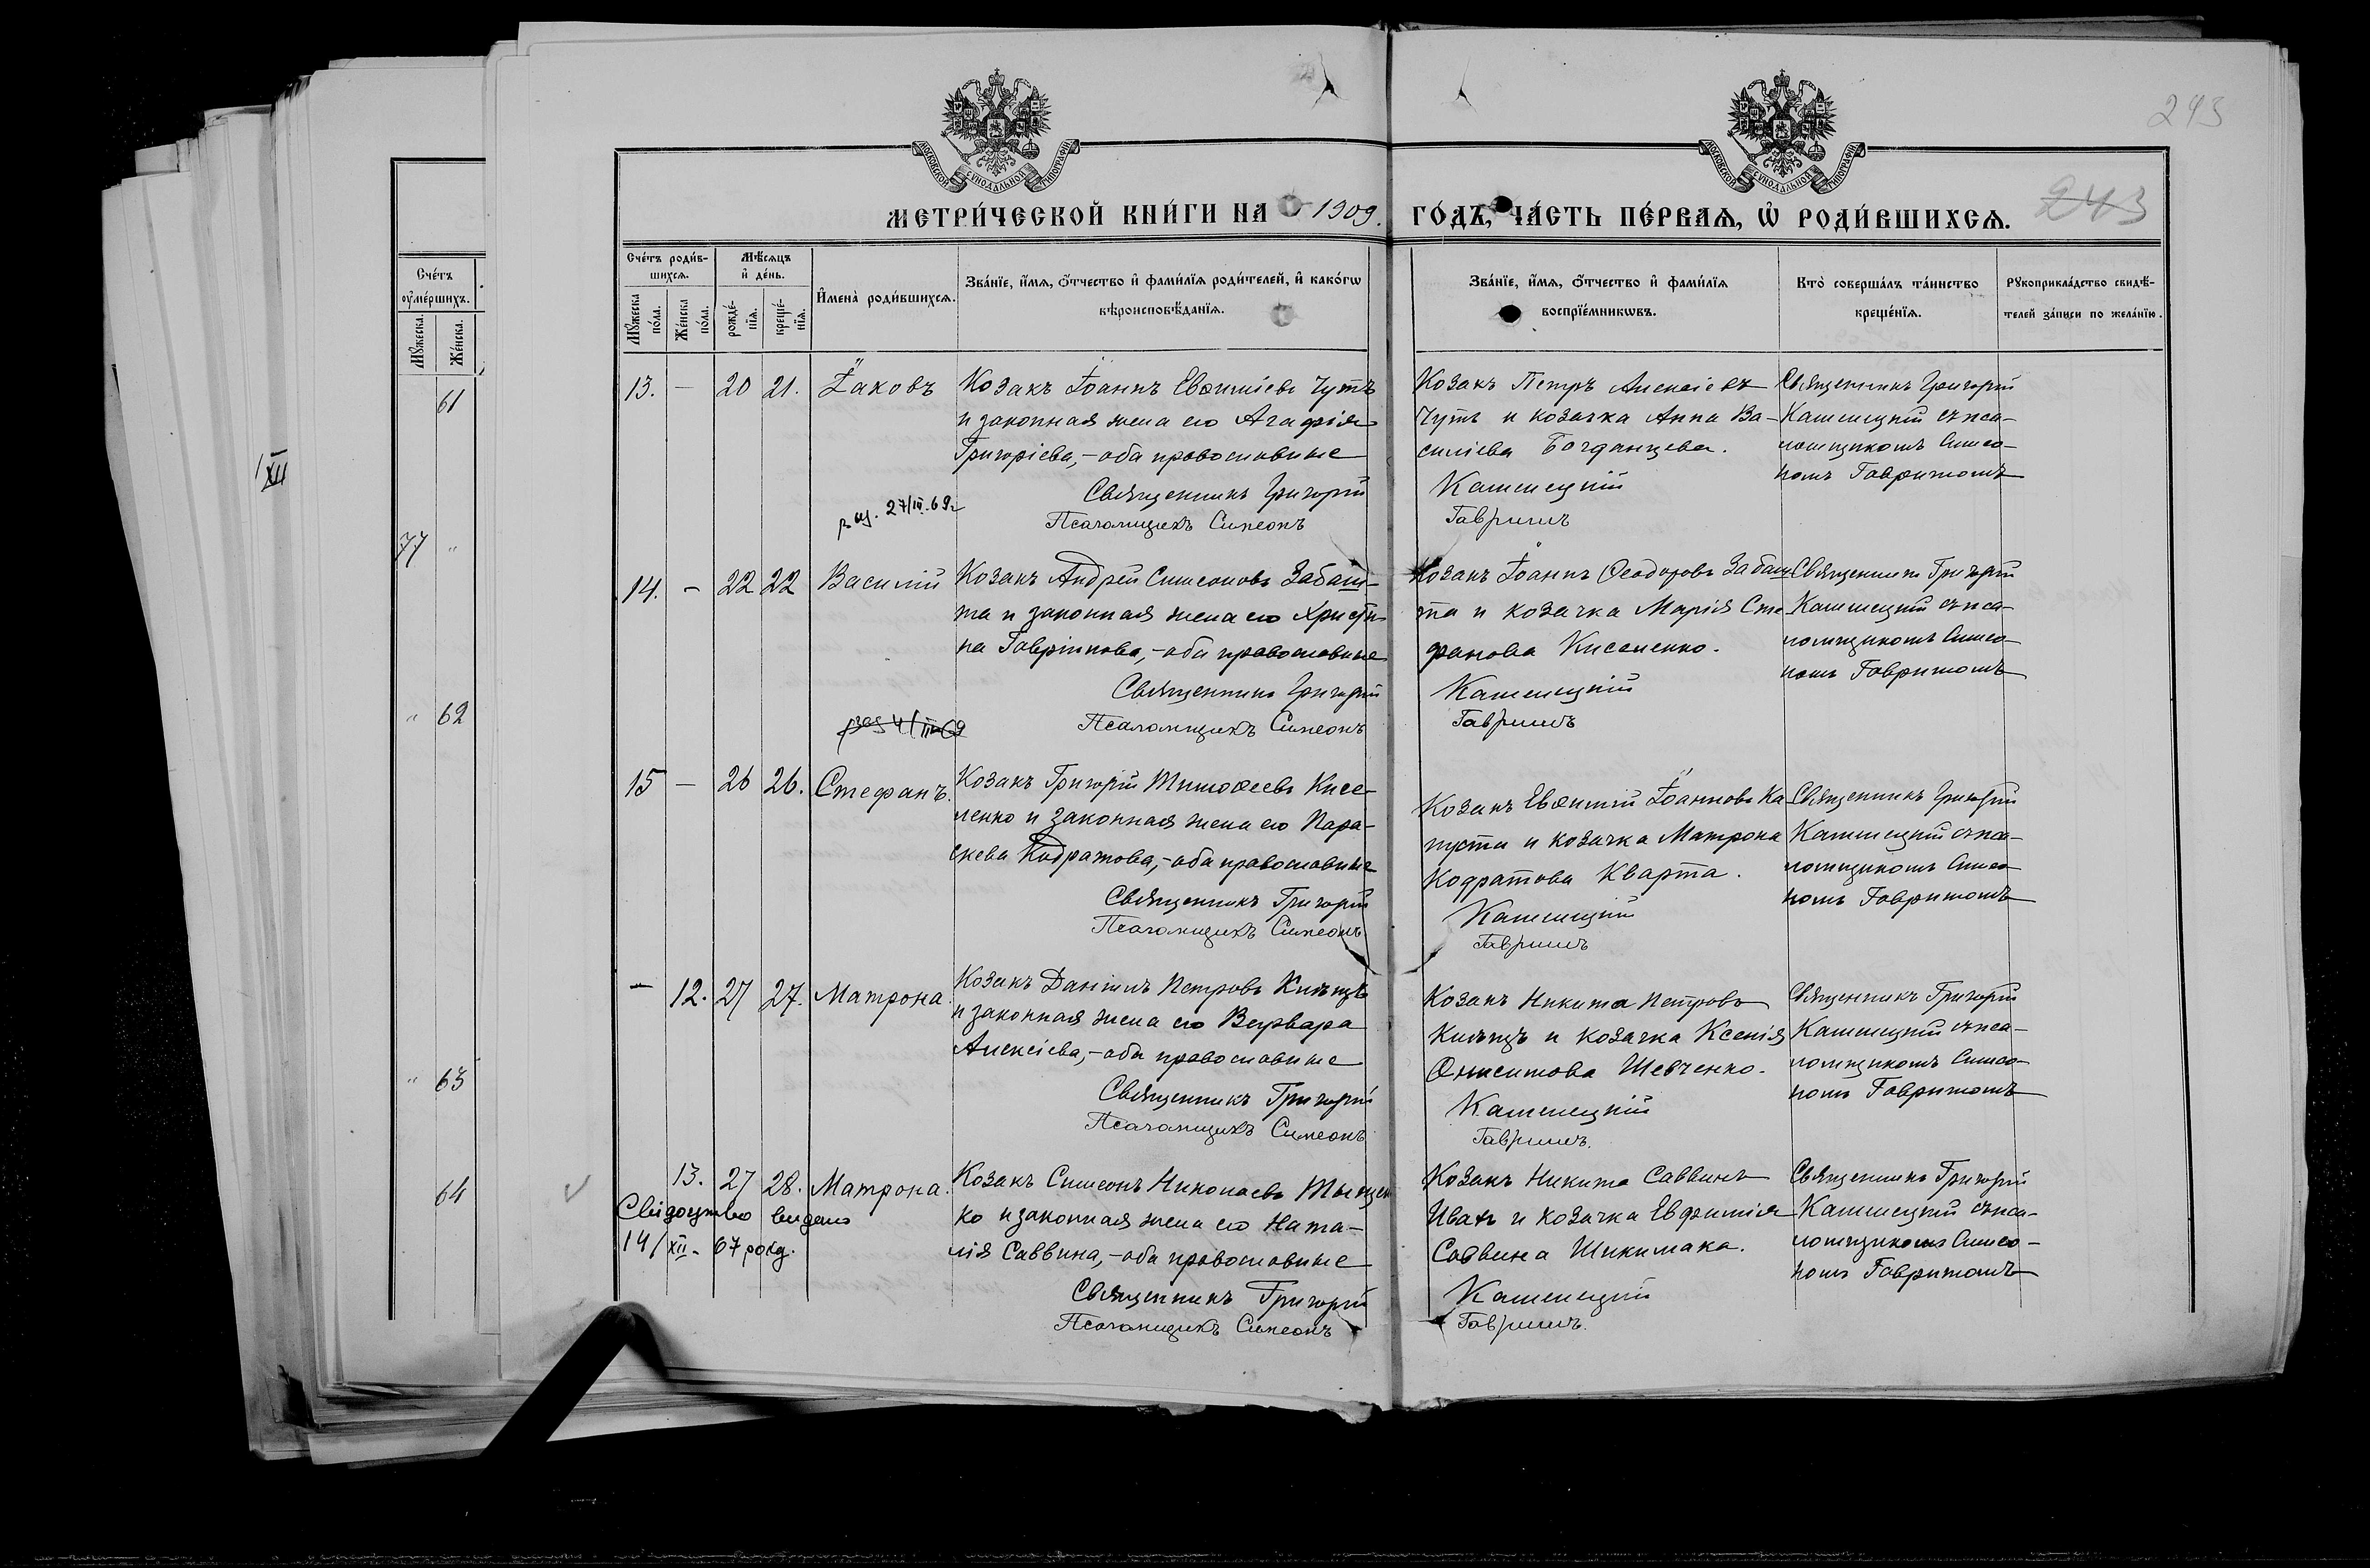 243
243
МОСКОВСКОЙ СѴНОДАЛЬНОЙ ТИПОГРАФІИ
МОСКОВСКОЙ СѴНОДАЛЬНОЙ ТИПОГРАФІИ
МЕТРИ́ЧЕСКОЙ КНИ́ГИ НА 1909. ГО́ДЪ, ЧА́СТЬ ПЕ́РВАЯ, Ѡ҆ РОДИ́ВШИХСЯ.
Сче́тъ
ᲂу҆ме́ршихъ.
Мꙋ́жеска.
Же́нска.
61
XII
77 "
" 62
" 63
64
Сче́тъ роди́в-
шихся.
Мꙋ́жеска по́ла.
Же́нска по́ла.
Мѣ́сяцъ
и҆ де́нь.
рожде́-
нїя.
креще́-
нїя.
И҆мена̀ роди́вшихся.
Зва́нїе, и҆́мя, ѻ҆́тчество и҆ фами́лїя роди́телей, и҆ како́гѡ
вѣроисповѣ́данїя.
Зва́нїе, и҆́мя, ѻ҆́тчество и҆ фами́лїя
воспрїе́мникѡвъ.
Кто̀ соверша́лъ та́инство
креще́нїя.
Рꙋкоприкла́дство свидѣ́-
телей за́писи по жела́нїю.
13. – 20 21. Іаковъ
Козакъ Іоаннъ Евѳиміевъ Чутъ
и законная жена его Агафія
Григоріева, – оба православные
Священникъ Григорій
Псаломщикъ Симеонъ
27/III.69г
Козакъ Петръ Алексіевъ
Чутъ и козачка Анна Ва-
силіева Богданцева.
Каменецкій
Гавришъ
Священникъ Григорій
Каменецкій съ пса-
ломщикомъ Симео-
номъ Гавришомъ
14. – 22 22 Василій
Козакъ Андрей Симеоновъ Забаш-
та и законная жена его Христи-
на Гавріилова, – оба православные
Священникъ Григорій
Псаломщикъ Симеонъ
Козакъ Іоаннъ Ѳеодоровъ Забаш-
та и козачка Марія Сте-
фанова Киселенко.
Каменецкій
Гавришъ
Священникъ Григорій
Каменецкій съ пса-
ломщикомъ Симео-
номъ Гавришомъ
15 – 26 26. Стефанъ.
Козакъ Григорій Тимоѳеевъ Кисе-
ленко и законная жена его Пара-
скева Кодратова, – оба православные
Священникъ Григорій
Псаломщикъ Симеонъ
Козакъ Евѳимій Іоанновъ Ка-
пуста и козачка Матрона
Кодратова Кварта.
Каменецкій
Гавришъ
Священникъ Григорій
Каменецкій съ пса-
ломщикомъ Симео-
номъ Гавришомъ
– 12. 27 27. Матрона.
Козакъ Даніилъ Петровъ
и законная жена его Варвара
Алексіева, – оба православные
Священникъ Григорій
Псаломщикъ Симеонъ
Козакъ Никита Петровъ
и козачка Ксенія
Онисимова Шевченко.
Каменецкій
Гавришъ.
Священникъ Григорій
Каменецкій съ пса-
ломщикомъ Симео-
номъ Гавришомъ
13. 27 28. Матрона.
Свідоцтво видано
14/XII. 67 року.
Козакъ Симеонъ Николаевъ Тыщен
ко и законная жена его Ната-
лія Саввина, – оба православные
Священникъ Григорій
Псаломщикъ Симеонъ
Козакъ Никита Саввинъ
и козачка Евфимія
Саввина Шикимака.
Каменецкій
Гавришъ.
Священникъ Григорій
Каменецкій съ пса-
ломщикомъ Симео-
номъ Гавришомъ